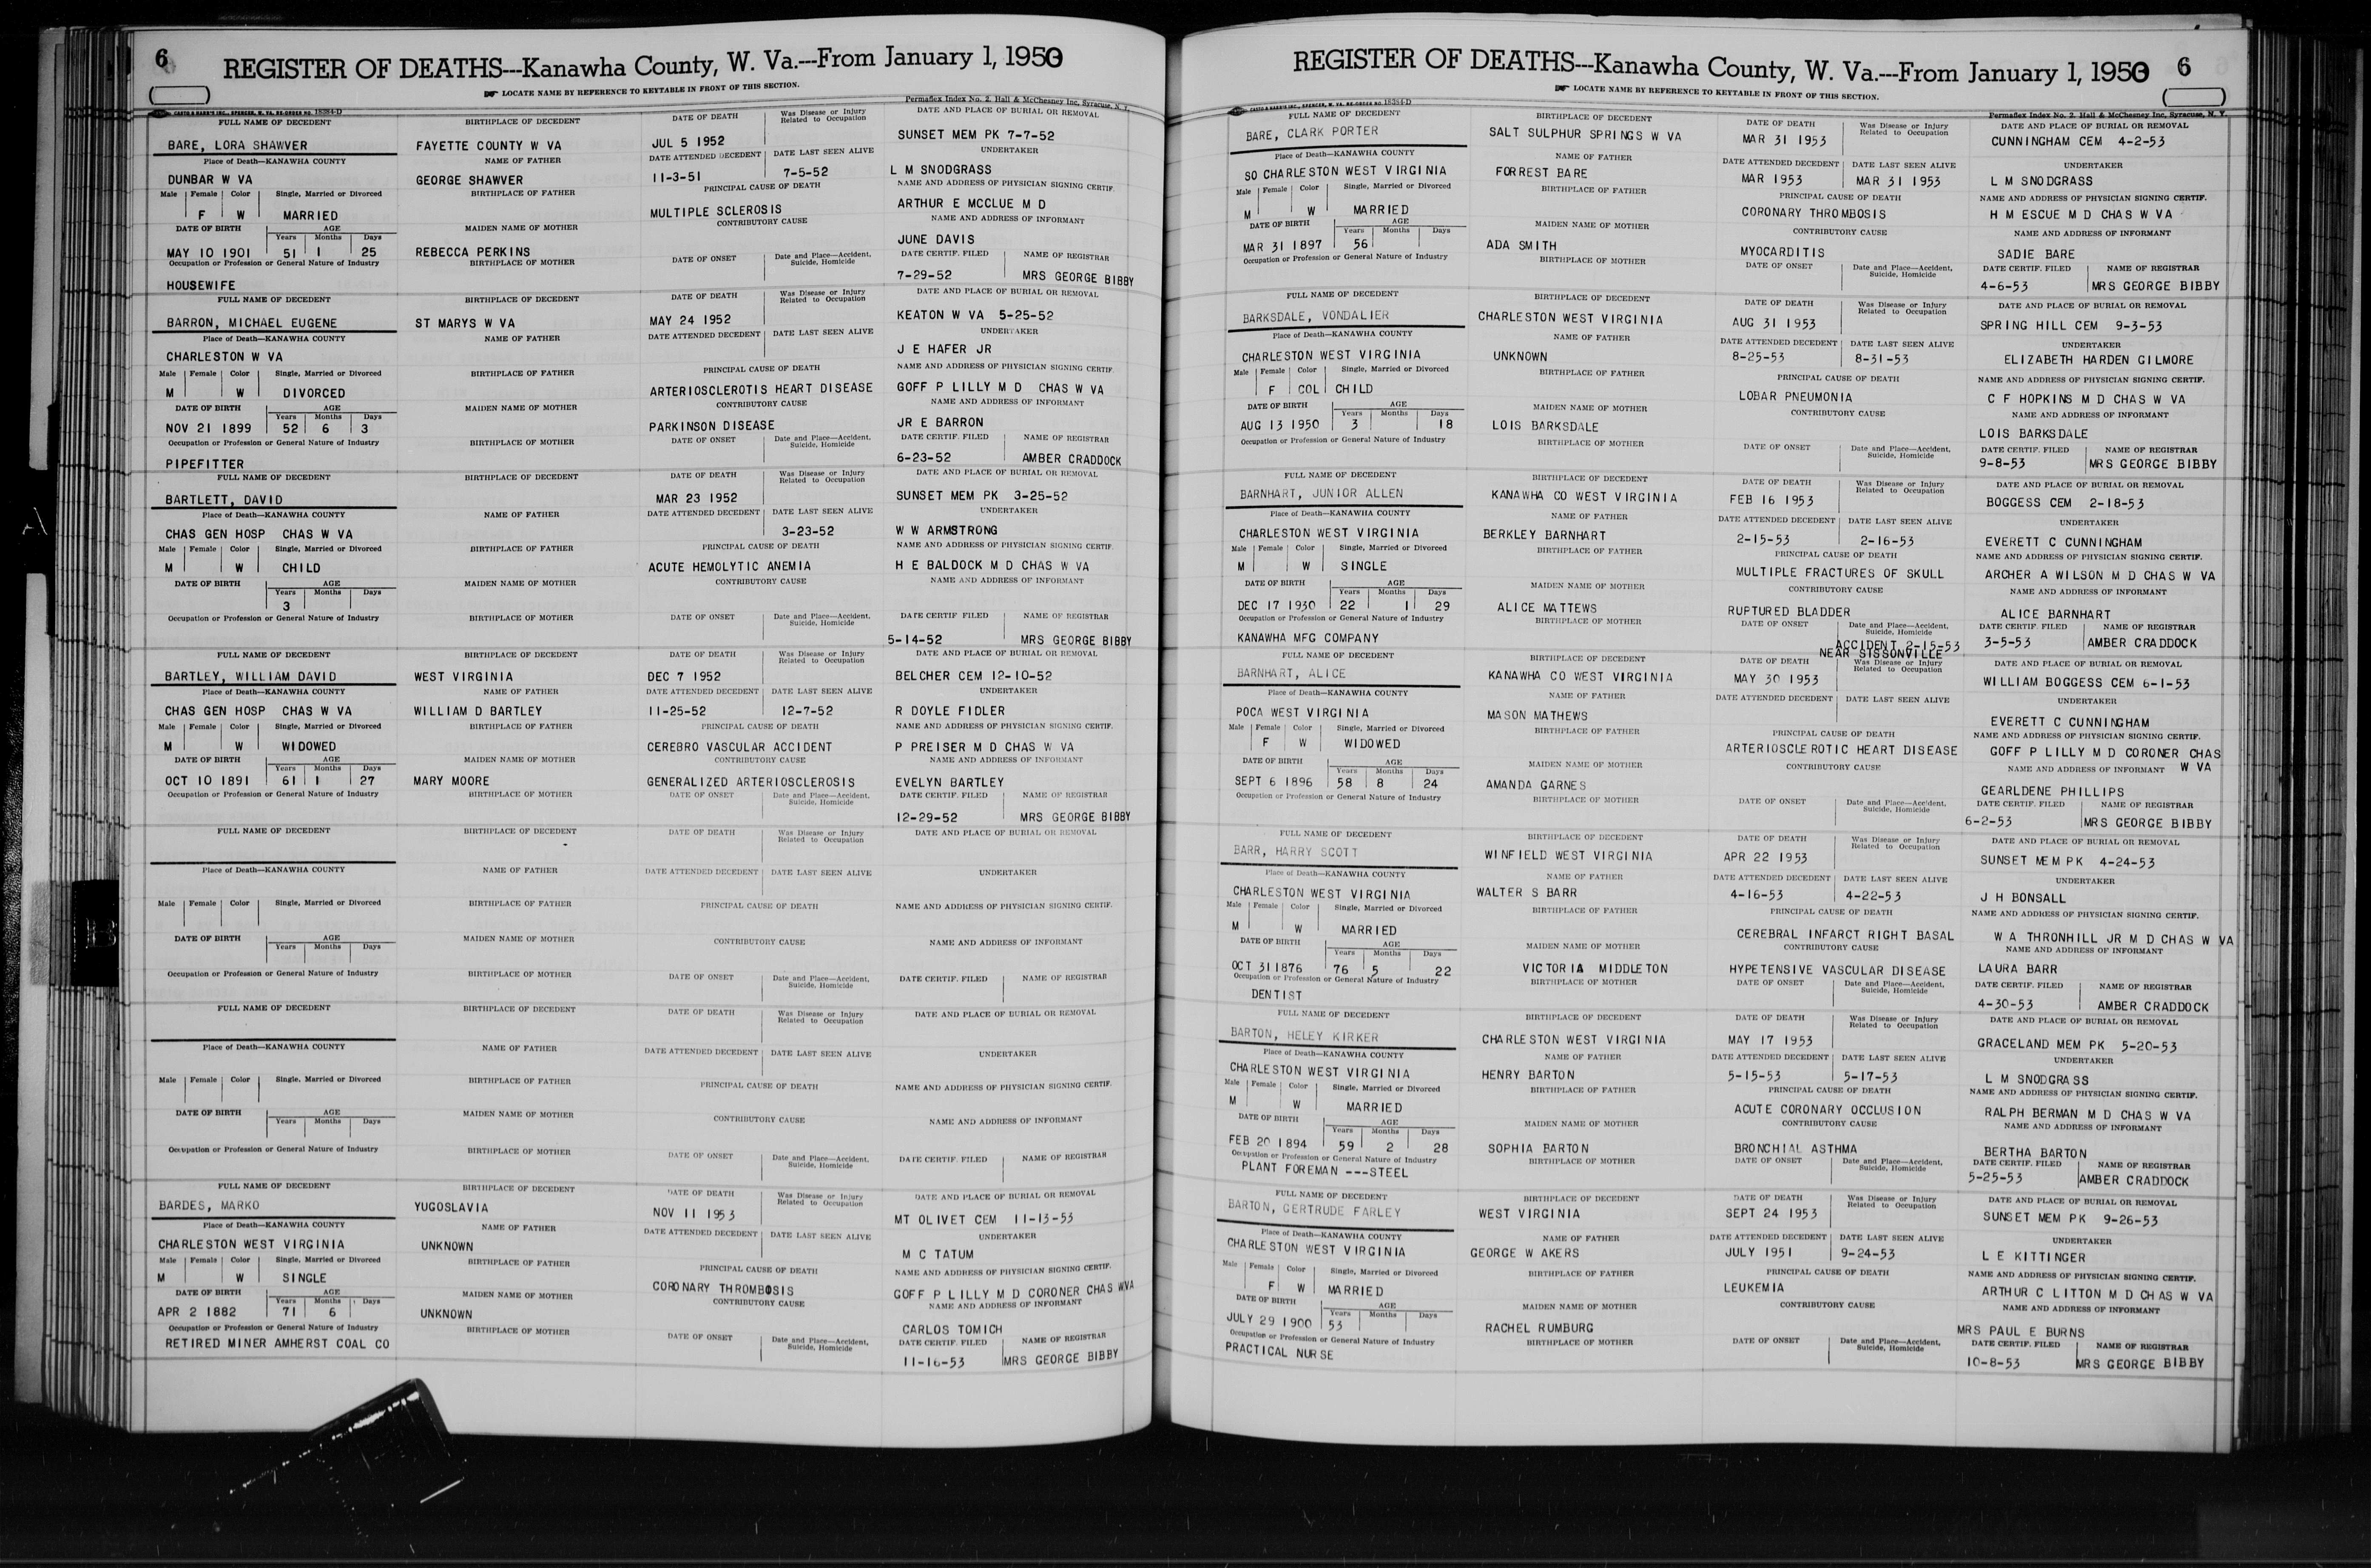 6
REGISTER OF DEATHS---Kanawha County, W. Va.---From January 1, 1950
☛ LOCATE NAME BY REFERENCE TO KEYTABLE IN FRONT OF THIS SECTION.
CASTO & HARRIS INC., SPENCER, W. VA. RE-ORDER NO. 18384-D
Permaflex Index No. 2. Hall & McChesney Inc, Syracuse, N. Y.
FULL NAME OF DECEDENT BIRTHPLACE OF DECEDENT DATE OF DEATH Was Disease or Injury Related to Occupation DATE AND PLACE OF BURIAL OR REMOVAL
BARE, LORA SHAWVER FAYETTE COUNTY W VA JUL 5 1952 SUNSET MEM PK 7-7-52
Place of Death—KANAWHA COUNTY NAME OF FATHER DATE ATTENDED DECEDENT DATE LAST SEEN ALIVE UNDERTAKER
DUNBAR W VA GEORGE SHAWVER 11-3-51 7-5-52 L M SNODGRASS
Male Female Color Single, Married or Divorced BIRTHPLACE OF FATHER PRINCIPAL CAUSE OF DEATH NAME AND ADDRESS OF PHYSICIAN SIGNING CERTIF.
F W MARRIED MULTIPLE SCLEROSIS ARTHUR E MCCLUE M D
DATE OF BIRTH AGE Years Months Days MAIDEN NAME OF MOTHER CONTRIBUTORY CAUSE NAME AND ADDRESS OF INFORMANT
MAY 10 1901 51 1 25 REBECCA PERKINS JUNE DAVIS
Occupation or Profession or General Nature of Industry BIRTHPLACE OF MOTHER DATE OF ONSET Date and Place—Accident, Suicide, Homicide DATE CERTIF. FILED NAME OF REGISTRAR
HOUSEWIFE 7-29-52 MRS GEORGE BIBBY
FULL NAME OF DECEDENT BIRTHPLACE OF DECEDENT DATE OF DEATH Was Disease or Injury Related to Occupation DATE AND PLACE OF BURIAL OR REMOVAL
BARRON, MICHAEL EUGENE ST MARYS W VA MAY 24 1952 KEATON W VA 5-25-52
Place of Death—KANAWHA COUNTY NAME OF FATHER DATE ATTENDED DECEDENT DATE LAST SEEN ALIVE UNDERTAKER
CHARLESTON W VA J E HAFER JR
Male Female Color Single, Married or Divorced BIRTHPLACE OF FATHER PRINCIPAL CAUSE OF DEATH NAME AND ADDRESS OF PHYSICIAN SIGNING CERTIF.
M W DIVORCED ARTERIOSCLEROTIS HEART DISEASE GOFF P LILLY M D CHAS W VA
DATE OF BIRTH AGE Years Months Days MAIDEN NAME OF MOTHER CONTRIBUTORY CAUSE NAME AND ADDRESS OF INFORMANT
NOV 21 1899 52 6 3 PARKINSON DISEASE JR E BARRON
Occupation or Profession or General Nature of Industry BIRTHPLACE OF MOTHER DATE OF ONSET Date and Place—Accident, Suicide, Homicide DATE CERTIF. FILED NAME OF REGISTRAR
PIPEFITTER 6-23-52 AMBER CRADDOCK
FULL NAME OF DECEDENT BIRTHPLACE OF DECEDENT DATE OF DEATH Was Disease or Injury Related to Occupation DATE AND PLACE OF BURIAL OR REMOVAL
BARTLETT, DAVID MAR 23 1952 SUNSET MEM PK 3-25-52
Place of Death—KANAWHA COUNTY NAME OF FATHER DATE ATTENDED DECEDENT DATE LAST SEEN ALIVE UNDERTAKER
CHAS GEN HOSP CHAS W VA 3-23-52 W W ARMSTRONG
Male Female Color Single, Married or Divorced BIRTHPLACE OF FATHER PRINCIPAL CAUSE OF DEATH NAME AND ADDRESS OF PHYSICIAN SIGNING CERTIF.
M W CHILD ACUTE HEMOLYTIC ANEMIA H E BALDOCK M D CHAS W VA
DATE OF BIRTH AGE Years Months Days MAIDEN NAME OF MOTHER CONTRIBUTORY CAUSE NAME AND ADDRESS OF INFORMANT
3
Occupation or Profession or General Nature of Industry BIRTHPLACE OF MOTHER DATE OF ONSET Date and Place—Accident, Suicide, Homicide DATE CERTIF FILED NAME OF REGISTRAR
5-14-52 MRS GEORGE BIBBY
FULL NAME OF DECEDENT BIRTHPLACE OF DECEDENT DATE OF DEATH Was Disease or Injury Related to Occupation DATE AND PLACE OF BURIAL OR REMOVAL
BARTLEY, WILLIAM DAVID WEST VIRGINIA DEC 7 1952 BELCHER CEM 12-10-52
Place of Death—KANAWHA COUNTY NAME OF FATHER DATE ATTENDED DECEDENT DATE LAST SEEN ALIVE UNDERTAKER
CHAS GEN HOSP CHAS W VA WILLIAM D BARTLEY 11-25-52 12-7-52 R DOYLE FIDLER
Male Female Color Single, Married or Divorced BIRTHPLACE OF FATHER PRINCIPAL CAUSE OF DEATH NAME AND ADDRESS OF PHYSICIAN SIGNING CERTIF.
M W WIDOWED CEREBRO VASCULAR ACCIDENT P PREISER M D CHAS W VA
DATE OF BIRTH AGE Years Months Days MAIDEN NAME OF MOTHER CONTRIBUTORY CAUSE NAME AND ADDRESS OF INFORMANT
OCT 10 1891 61 1 27 MARY MOORE GENERALIZED ARTERIOSCLEROSIS EVELYN BARTLEY
Occupation or Profession or General Nature of Industry BIRTHPLACE OF MOTHER DATE OF ONSET Date and Place—Accident, Suicide, Homicide DATE CERTIF. FILED NAME OF REGISTRAR
12-29-52 MRS GEORGE BIBBY
FULL NAME OF DECEDENT BIRTHPLACE OF DECEDENT DATE OF DEATH Was Disease or Injury Related to Occupation DATE AND PLACE OF BURIAL OR REMOVAL
Place of Death—KANAWHA COUNTY NAME OF FATHER DATE ATTENDED DECEDENT DATE LAST SEEN ALIVE UNDERTAKER
Male Female Color Single, Married or Divorced BIRTHPLACE OF FATHER PRINCIPAL CAUSE OF DEATH NAME AND ADDRESS OF PHYSICIAN SIGNING CERTIF.
DATE OF BIRTH AGE Years Months Days MAIDEN NAME OF MOTHER CONTRIBUTORY CAUSE NAME AND ADDRESS OF INFORMANT
Occupation or Profession or General Nature of Industry BIRTHPLACE OF MOTHER DATE OF ONSET Date and Place—Accident, Suicide, Homicide DATE CERTIF. FILED NAME OF REGISTRAR
FULL NAME OF DECEDENT BIRTHPLACE OF DECEDENT DATE OF DEATH Was Disease or Injury Related to Occupation DATE AND PLACE OF BURIAL OR REMOVAL
Place of Death—KANAWHA COUNTY NAME OF FATHER DATE ATTENDED DECEDENT DATE LAST SEEN ALIVE UNDERTAKER
Male Female Color Single, Married or Divorced BIRTHPLACE OF FATHER PRINCIPAL CAUSE OF DEATH NAME AND ADDRESS OF PHYSICIAN SIGNING CERTIF.
DATE OF BIRTH AGE Years Months Days MAIDEN NAME OF MOTHER CONTRIBUTORY CAUSE NAME AND ADDRESS OF INFORMANT
Occupation or Profession or General Nature of Industry BIRTHPLACE OF MOTHER DATE OF ONSET Date and Place—Accident, Suicide, Homicide DATE CERTIF. FILED NAME OF REGISTRAR
FULL NAME OF DECEDENT BIRTHPLACE OF DECEDENT DATE OF DEATH Was Disease or Injury Related to Occupation DATE AND PLACE OF BURIAL OR REMOVAL
BARDES, MARKO YUGOSLAVIA NOV 11 1953 MT OLIVET CEM 11-13-53
Place of Death—KANAWHA COUNTY NAME OF FATHER DATE ATTENDED DECEDENT DATE LAST SEEN ALIVE UNDERTAKER
CHARLESTON WEST VIRGINIA UNKNOWN M C TATUM
Male Female Color Single, Married or Divorced BIRTHPLACE OF FATHER PRINCIPAL CAUSE OF DEATH NAME AND ADDRESS OF PHYSICIAN SIGNING CERTIF.
M W SINGLE CORONARY THROMBOSIS GOFF P LILLY M D CORONER CHAS WVA
DATE OF BIRTH AGE Years Months Days MAIDEN NAME OF MOTHER CONTRIBUTORY CAUSE NAME AND ADDRESS OF INFORMANT
APR 2 1882 71 6 UNKNOWN CARLOS TOMICH
Occupation or Profession or General Nature of Industry BIRTHPLACE OF MOTHER DATE OF ONSET Date and Place—Accident, Suicide, Homicide DATE CERTIF. FILED NAME OF REGISTRAR
RETIRED MINER AMHERST COAL CO 11-16-53 MRS GEORGE BIBBY
REGISTER OF DEATHS---Kanawha County, W. Va.---From January 1, 1950 6
☛ LOCATE NAME BY REFERENCE TO KEYTABLE IN FRONT OF THIS SECTION.
CASTO & HARRIS INC., SPENCER, W. VA. RE-ORDER NO. 18384-D
Permaflex Index No. 2. Hall & McChesney Inc, Syracuse, N. Y.
FULL NAME OF DECEDENT BIRTHPLACE OF DECEDENT DATE OF DEATH Was Disease or Injury Related to Occupation DATE AND PLACE OF BURIAL OR REMOVAL
BARE, CLARK PORTER SALT SULPHUR SPRINGS W VA MAR 31 1953 CUNNINGHAM CEM 4-2-53
Place of Death—KANAWHA COUNTY NAME OF FATHER DATE ATTENDED DECEDENT DATE LAST SEEN ALIVE UNDERTAKER
SO CHARLESTON WEST VIRGINIA FORREST BARE MAR 1953 MAR 31 1953 L M SNODGRASS
Male Female Color Single, Married or Divorced BIRTHPLACE OF FATHER PRINCIPAL CAUSE OF DEATH NAME AND ADDRESS OF PHYSICIAN SIGNING CERTIF.
M W MARRIED CORONARY THROMBOSIS H M ESCUE M D CHAS W VA
DATE OF BIRTH AGE Years Months Days MAIDEN NAME OF MOTHER CONTRIBUTORY CAUSE NAME AND ADDRESS OF INFORMANT
MAR 31 1897 56 ADA SMITH MYOCARDITIS SADIE BARE
Occupation or Profession or General Nature of Industry BIRTHPLACE OF MOTHER DATE OF ONSET Date and Place—Accident, Suicide, Homicide DATE CERTIF. FILED NAME OF REGISTRAR
4-6-53 MRS GEORGE BIBBY
FULL NAME OF DECEDENT BIRTHPLACE OF DECEDENT DATE OF DEATH Was Disease or Injury Related to Occupation DATE AND PLACE OF BURIAL OR REMOVAL
BARKSDALE, VONDALIER CHARLESTON WEST VIRGINIA AUG 31 1953 SPRING HILL CEM 9-3-53
Place of Death—KANAWHA COUNTY NAME OF FATHER DATE ATTENDED DECEDENT DATE LAST SEEN ALIVE UNDERTAKER
CHARLESTON WEST VIRGINIA UNKNOWN 8-25-53 8-31-53 ELIZABETH HARDEN GILMORE
Male Female Color Single, Married or Divorced BIRTHPLACE OF FATHER PRINCIPAL CAUSE OF DEATH NAME AND ADDRESS OF PHYSICIAN SIGNING CERTIF.
F COL CHILD LOBAR PNEUMONIA C F HOPKINS M D CHAS W VA
DATE OF BIRTH AGE Years Months Days MAIDEN NAME OF MOTHER CONTRIBUTORY CAUSE NAME AND ADDRESS OF INFORMANT
AUG 13 1950 3 18 LOIS BARKSDALE LOIS BARKSDALE
Occupation or Profession or General Nature of Industry BIRTHPLACE OF MOTHER DATE OF ONSET Date and Place—Accident, Suicide, Homicide DATE CERTIF. FILED NAME OF REGISTRAR
9-8-53 MRS GEORGE BIBBY
FULL NAME OF DECEDENT BIRTHPLACE OF DECEDENT DATE OF DEATH Was Disease or Injury Related to Occupation DATE AND PLACE OF BURIAL OR REMOVAL
BARNHART, JUNIOR ALLEN KANAWHA CO WEST VIRGINIA FEB 16 1953 BOGGESS CEM 2-18-53
Place of Death—KANAWHA COUNTY NAME OF FATHER DATE ATTENDED DECEDENT DATE LAST SEEN ALIVE UNDERTAKER
CHARLESTON WEST VIRGINIA BERKLEY BARNHART 2-15-53 2-16-53 EVERETT C CUNNINGHAM
Male Female Color Single, Married or Divorced BIRTHPLACE OF FATHER PRINCIPAL CAUSE OF DEATH NAME AND ADDRESS OF PHYSICIAN SIGNING CERTIF.
M W SINGLE MULTIPLE FRACTURES OF SKULL ARCHER A WILSON M D CHAS W VA
DATE OF BIRTH AGE Years Months Days MAIDEN NAME OF MOTHER CONTRIBUTORY CAUSE NAME AND ADDRESS OF INFORMANT
DEC 17 1930 22 1 29 ALICE MATTEWS RUPTURED BLADDER ALICE BARNHART
Occupation or Profession or General Nature of Industry BIRTHPLACE OF MOTHER DATE OF ONSET Date and Place—Accident, Suicide, Homicide DATE CERTIF. FILED NAME OF REGISTRAR
KANAWHA MFG COMPANY ACCIDENT 2-15-53 NEAR SISSONVILLE 3-5-53 AMBER CRADDOCK
FULL NAME OF DECEDENT BIRTHPLACE OF DECEDENT DATE OF DEATH Was Disease or Injury Related to Occupation DATE AND PLACE OF BURIAL OR REMOVAL
BARNHART, ALICE KANAWHA CO WEST VIRGINIA MAY 30 1953 WILLIAM BOGGESS CEM 6-1-53
Place of Death—KANAWHA COUNTY NAME OF FATHER DATE ATTENDED DECEDENT DATE LAST SEEN ALIVE UNDERTAKER
POCA WEST VIRGINIA MASON MATHEWS EVERETT C CUNNINGHAM
Male Female Color Single, Married or Divorced BIRTHPLACE OF FATHER PRINCIPAL CAUSE OF DEATH NAME AND ADDRESS OF PHYSICIAN SIGNING CERTIF.
F W WIDOWED ARTERIOSCLEROTIC HEART DISEASE GOFF P LILLY M D CORONER CHAS W VA
DATE OF BIRTH AGE Years Months Days MAIDEN NAME OF MOTHER CONTRIBUTORY CAUSE NAME AND ADDRESS OF INFORMANT
SEPT 6 1896 58 8 24 AMANDA GARNES GEARLDENE PHILLIPS
Occupation or Profession or General Nature of Industry BIRTHPLACE OF MOTHER DATE OF ONSET Date and Place—Accident, Suicide, Homicide DATE CERTIF. FILED NAME OF REGISTRAR
6-2-53 MRS GEORGE BIBBY
FULL NAME OF DECEDENT BIRTHPLACE OF DECEDENT DATE OF DEATH Was Disease or Injury Related to Occupation DATE AND PLACE OF BURIAL OR REMOVAL
BARR, HARRY SCOTT WINFIELD WEST VIRGINIA APR 22 1953 SUNSET MEM PK 4-24-53
Place of Death—KANAWHA COUNTY NAME OF FATHER DATE ATTENDED DECEDENT DATE LAST SEEN ALIVE UNDERTAKER
CHARLESTON WEST VIRGINIA WALTER S BARR 4-16-53 4-22-53 J H BONSALL
Male Female Color Single, Married or Divorced BIRTHPLACE OF FATHER PRINCIPAL CAUSE OF DEATH NAME AND ADDRESS OF PHYSICIAN SIGNING CERTIF.
M W MARRIED CEREBRAL INFARCT RIGHT BASAL W A THRONHILL JR M D CHAS W VA
DATE OF BIRTH AGE Years Months Days MAIDEN NAME OF MOTHER CONTRIBUTORY CAUSE NAME AND ADDRESS OF INFORMANT
OCT 31 1876 76 5 22 VICTORIA MIDDLETON HYPETENSIVE VASCULAR DISEASE LAURA BARR
Occupation or Profession or General Nature of Industry BIRTHPLACE OF MOTHER DATE OF ONSET Date and Place—Accident, Suicide, Homicide DATE CERTIF. FILED NAME OF REGISTRAR
DENTIST 4-30-53 AMBER CRADDOCK
FULL NAME OF DECEDENT BIRTHPLACE OF DECEDENT DATE OF DEATH Was Disease or Injury Related to Occupation DATE AND PLACE OF BURIAL OR REMOVAL
BARTON, HELEY KIRKER CHARLESTON WEST VIRGINIA MAY 17 1953 GRACELAND MEM PK 5-20-53
Place of Death—KANAWHA COUNTY NAME OF FATHER DATE ATTENDED DECEDENT DATE LAST SEEN ALIVE UNDERTAKER
CHARLESTON WEST VIRGINIA HENRY BARTON 5-15-53 5-17-53 L M SNODGRASS
Male Female Color Single, Married or Divorced BIRTHPLACE OF FATHER PRINCIPAL CAUSE OF DEATH NAME AND ADDRESS OF PHYSICIAN SIGNING CERTIF.
M W MARRIED ACUTE CORONARY OCCLUSION RALPH BERMAN M D CHAS W VA
DATE OF BIRTH AGE Years Months Days MAIDEN NAME OF MOTHER CONTRIBUTORY CAUSE NAME AND ADDRESS OF INFORMANT
FEB 20 1894 59 2 28 SOPHIA BARTON BRONCHIAL ASTHMA BERTHA BARTON
Occupation or Profession or General Nature of Industry BIRTHPLACE OF MOTHER DATE OF ONSET Date and Place—Accident, Suicide, Homicide DATE CERTIF. FILED NAME OF REGISTRAR
PLANT FOREMAN ---STEEL 5-25-53 AMBER CRADDOCK
FULL NAME OF DECEDENT BIRTHPLACE OF DECEDENT DATE OF DEATH Was Disease or Injury Related to Occupation DATE AND PLACE OF BURIAL OR REMOVAL
BARTON, GERTRUDE FARLEY WEST VIRGINIA SEPT 24 1953 SUNSET MEM PK 9-26-53
Place of Death—KANAWHA COUNTY NAME OF FATHER DATE ATTENDED DECEDENT DATE LAST SEEN ALIVE UNDERTAKER
CHARLESTON WEST VIRGINIA GEORGE W AKERS JULY 1951 9-24-53 L E KITTINGER
Male Female Color Single, Married or Divorced BIRTHPLACE OF FATHER PRINCIPAL CAUSE OF DEATH NAME AND ADDRESS OF PHYSICIAN SIGNING CERTIF.
F W MARRIED LEUKEMIA ARTHUR C LITTON M D CHAS W VA
DATE OF BIRTH AGE Years Months Days MAIDEN NAME OF MOTHER CONTRIBUTORY CAUSE NAME AND ADDRESS OF INFORMANT
JULY 29 1900 53 RACHEL RUMBURG MRS PAUL E BURNS
Occupation or Profession or General Nature of Industry BIRTHPLACE OF MOTHER DATE OF ONSET Date and Place—Accident, Suicide, Homicide DATE CERTIF. FILED NAME OF REGISTRAR
PRACTICAL NURSE 10-8-53 MRS GEORGE BIBBY